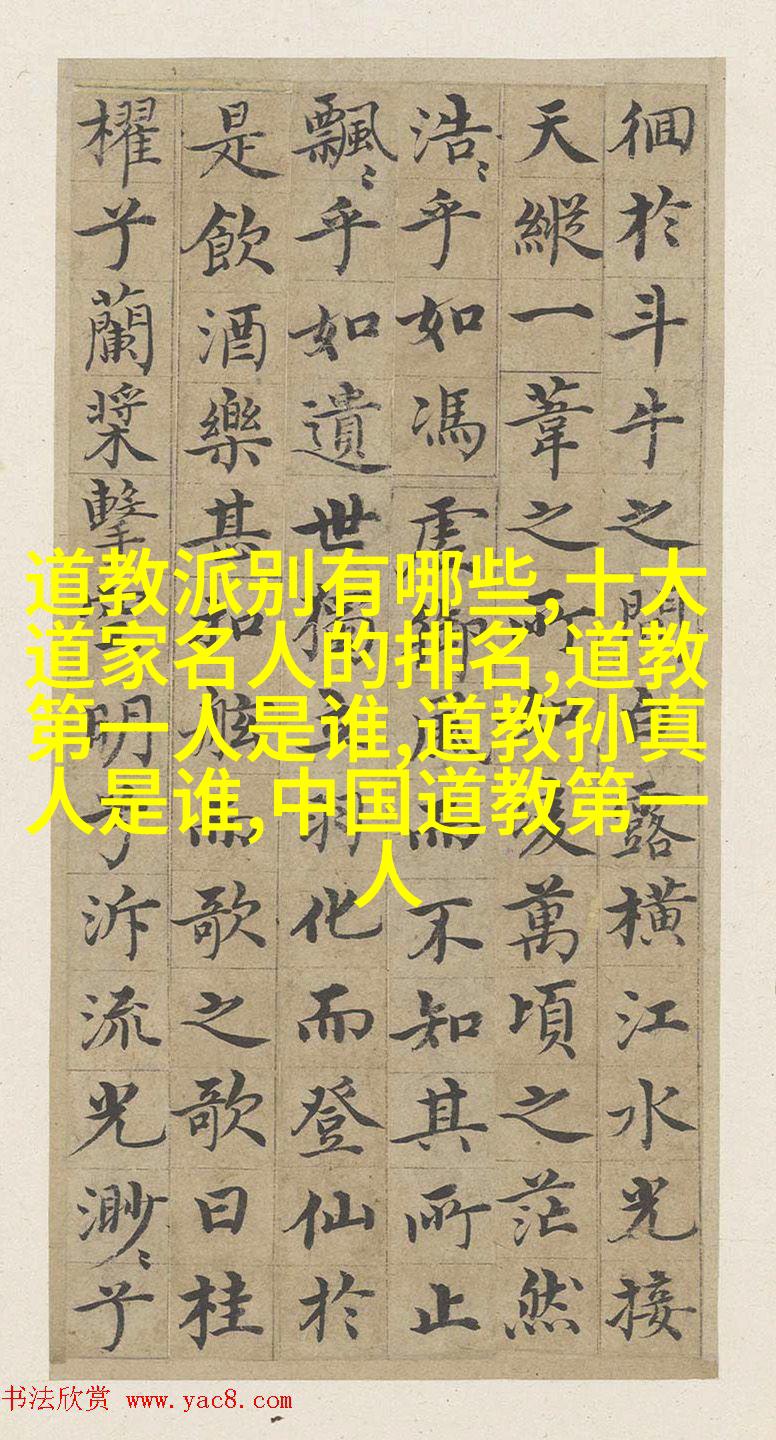 徊於斗牛之間白露橫江水光接
天縱一葦之所如凌萬頃之茫然
浩〻乎如馮虛御風而不知其所止
飄〻乎如遺世獨立羽化而登仙於
是飲酒樂甚扣舷而歌之歌曰桂
櫂兮蘭槳擊空明兮泝流光渺〻兮
道教派别有哪些,十大
道家名人的排名,道教
第一人是谁,道教孙真
人是谁,中国道教第一
人
书法欣赏 www.yac8.com